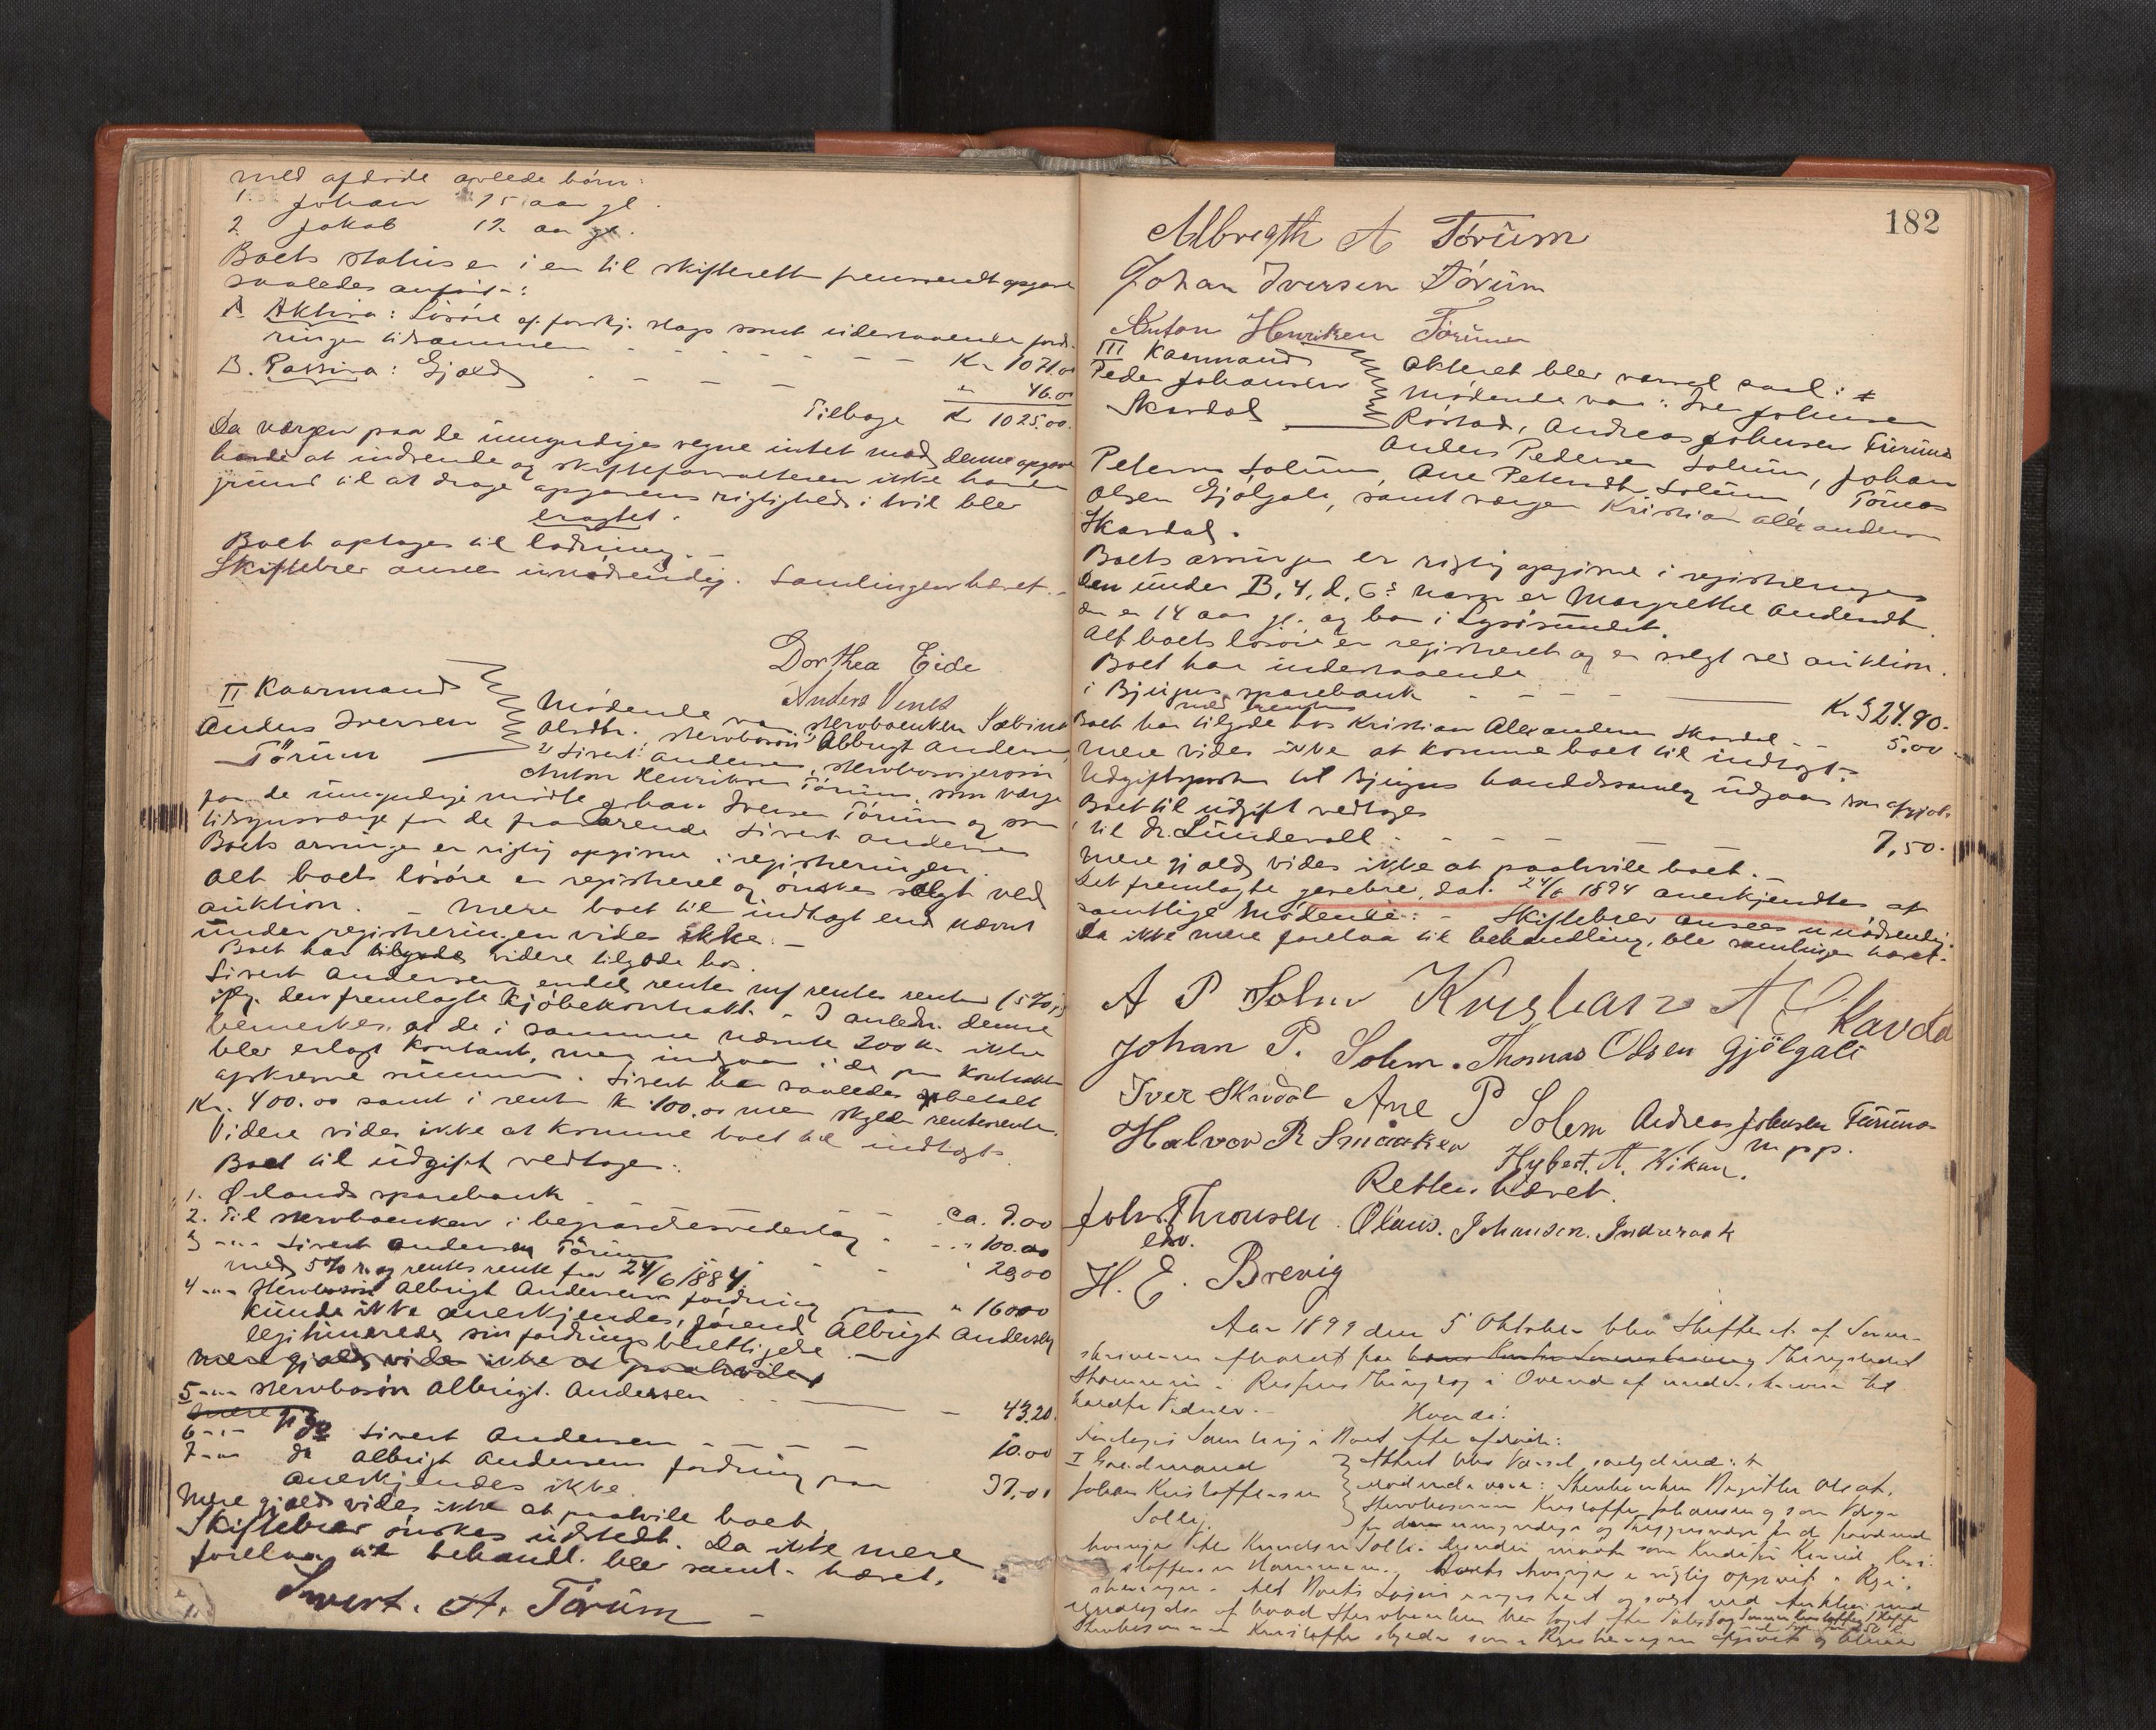 med afdøde avlede børn:
1. Johan 15 aar gl.
2. Jakob 12 aar gl.
Boets status er i en til skifteretten fremsendt opgave
saaledes anført:
A. Aktiva: Løsøre af forskj. slags samt udestaaende ford-
ringer tilsammen - - - - Kr. 1071.00
B. Passiva: Gjæld - - - - " 46.00
Tilbage Kr 1025.00.
Da værgen paa de umyndiges vegne intet mod denne opgave
havde at indvende og skifteforvalteren ikke havde
grund til at drage opgavens rigtighed i tvil blev
eragtet.
Boet optages til lodning. -
Skiftebrev ansees unødvendig. Samlingen hævet. -
Dorthea Eide
Anders Venes
II Kaarmand
Anders Iversen
Tørum
Mødende var Stervboenken Sæbina
Olsdtr., stervbosøn 1) Albrigt Andersen,
2) Sivert Andersen, stervbosvigersøn
Anton Henriksen Tørum, som værge
for de umyndige mødte Johan Iversen Tørum og som
tilsynsværge for de fraværende Sivert Andersen
Boets arvinger er rigtig opgivne i registreringen.
Alt boets løsøre er registreret og ønskes solgt ved
auktion. - Mere boet til indtægt end nævnt
under registreringen vides ikke. -
Boet har tilgode videre tilgode hos
Sivert Andersen endel renter m/ rentes renter (5%)
iflg. den fremlagte kjøbekontrakt. - I anledn. denne
bemerkes, at de i samme nævnte 200 kr. ikke
blev erlagt kontant, men indgaar i de pr. kontrakten
opskrevne summer. Sivert har saaledes betalt
Kr. 400.00 samt i rente kr 100.00 men skylder rentesrente.
Videre vides ikke at komme boet til indtægt.
Boet til udgift vedtoges:
1. Ørlands sparebank - - ca. 9.00
2. Til stervboenken i begravelsesvederlag - " 100.00
3 -"- Sivert Andersen Tørum - - " 29.00
med 5% r. og rentes rente fra 24/6 1884.
4 -"- Stervbosøn Albrigt Andersens fordring paa " 160.00
kunde ikke anerkjendes, førend Albrigt Andersen
legitimerede sin fordringsberettigelse. -
Mere gjæld vides ikke at paahvile
5 -"- stervbosøn Albrigt. Andersen - - 43.20.
Mere gj
6 -"- do Sivert Andersen - - - - 10.00
7 -"- do Albrigt Andersens fordring paa 37.01
anerkjendes ikke.
Mere gjæld vides ikke at paahvile boet
Skiftebrev ønskes udstedt. Da ikke mere
forelaa til behandl. blev saml. hævet.
Sivert. A. Tørum
182
Albregth A Tørum
Johan Iversen Tørum
Anton Henriken Tørum
III Kaarmand
Peder Johansen
Skardal
Akteret blev varsel saal:
Mødende var: Iver Johnsen
Røstad, Andreas Johnsen Türüms
Anders Pedersen Solum, Johan
Petersen Solum, Ane Petersdtr. Solum, Tomas
Olsen Gjølgali, samt værgen Kristian Alexandersen
Skardal.
Boets arvinger er rigtig opgivne i registreringen
Den under B, 4, d, 6s navn er Margrethe Andersdtr.
den er 14 aar gl. og bor i Lysøsundet.
Alt boets løsøre er registreret og er solgt ved auktion.
Boet har indestaaende
i Bjugns sparebank - - - - Kr 324.90.
med renter
Boet har tilgode hos Kristian Alexandersen Skardal - - 5.00
Mere vides ikke at komme boet til indtægt.
Udgiftsposten til Bjugns handelssamlag udgaar som opgjort.
Boet til udgift vedtoges
til Dr. Lundevall - - - - 7,50.
Mere gjæld vides ikke at paahvile boet. -
Det fremlagte gavebrev, dat. 24/6 1894 anerkjendtes af
samtlige Mødende: - Skiftebrev ansees unødvendig.
Da ikke mere forelaa til behandling, blev samlingen hævet.
A P Solm Krystian A Skavda
Johan P. Solem. Thomas Olsen Gjölgali
Iver Skavdal Ane P Solem Andreas Johnsen Türüms
m.p.p.
Halvor R Småaken Hybert. A. Wikan.
Retten hævet.
John. Thronsen. Olaus. Johnsen. Indreraak
edv.
H. E. Brevig
Aar 1899 den 5 Oktober blev Skifteret af Soren-
skriveren afholdt paa Thingstedet
i Risfjens Thinglag i Overvær af undertegnede til
kaldte Vidner. -
Hvorda:
Foretoges Samling i Boet efter afdøde:
I Gaardmand
Johan Kristoffersen
Solli.
Aktet blev Varsel, saalydende:
Mødende var: Stervboenken Birgitte Olsdt.
Stervbosønnen Kristoffer Johansen og som Værge
for den umyndige og Tilsynsværge for de fraværende
Arvinge Peter Knudsen Solli.
Boets Arvinger er rigtig opgivet i Regi-
streringen. Alt Boets Løsøre er registreret og solgt ved Auktion med
Undtagelse af hvad Stervboenken har taget efter
Stervbosønnen Kristoffer skylder som i Registreringen opgivet og bliver